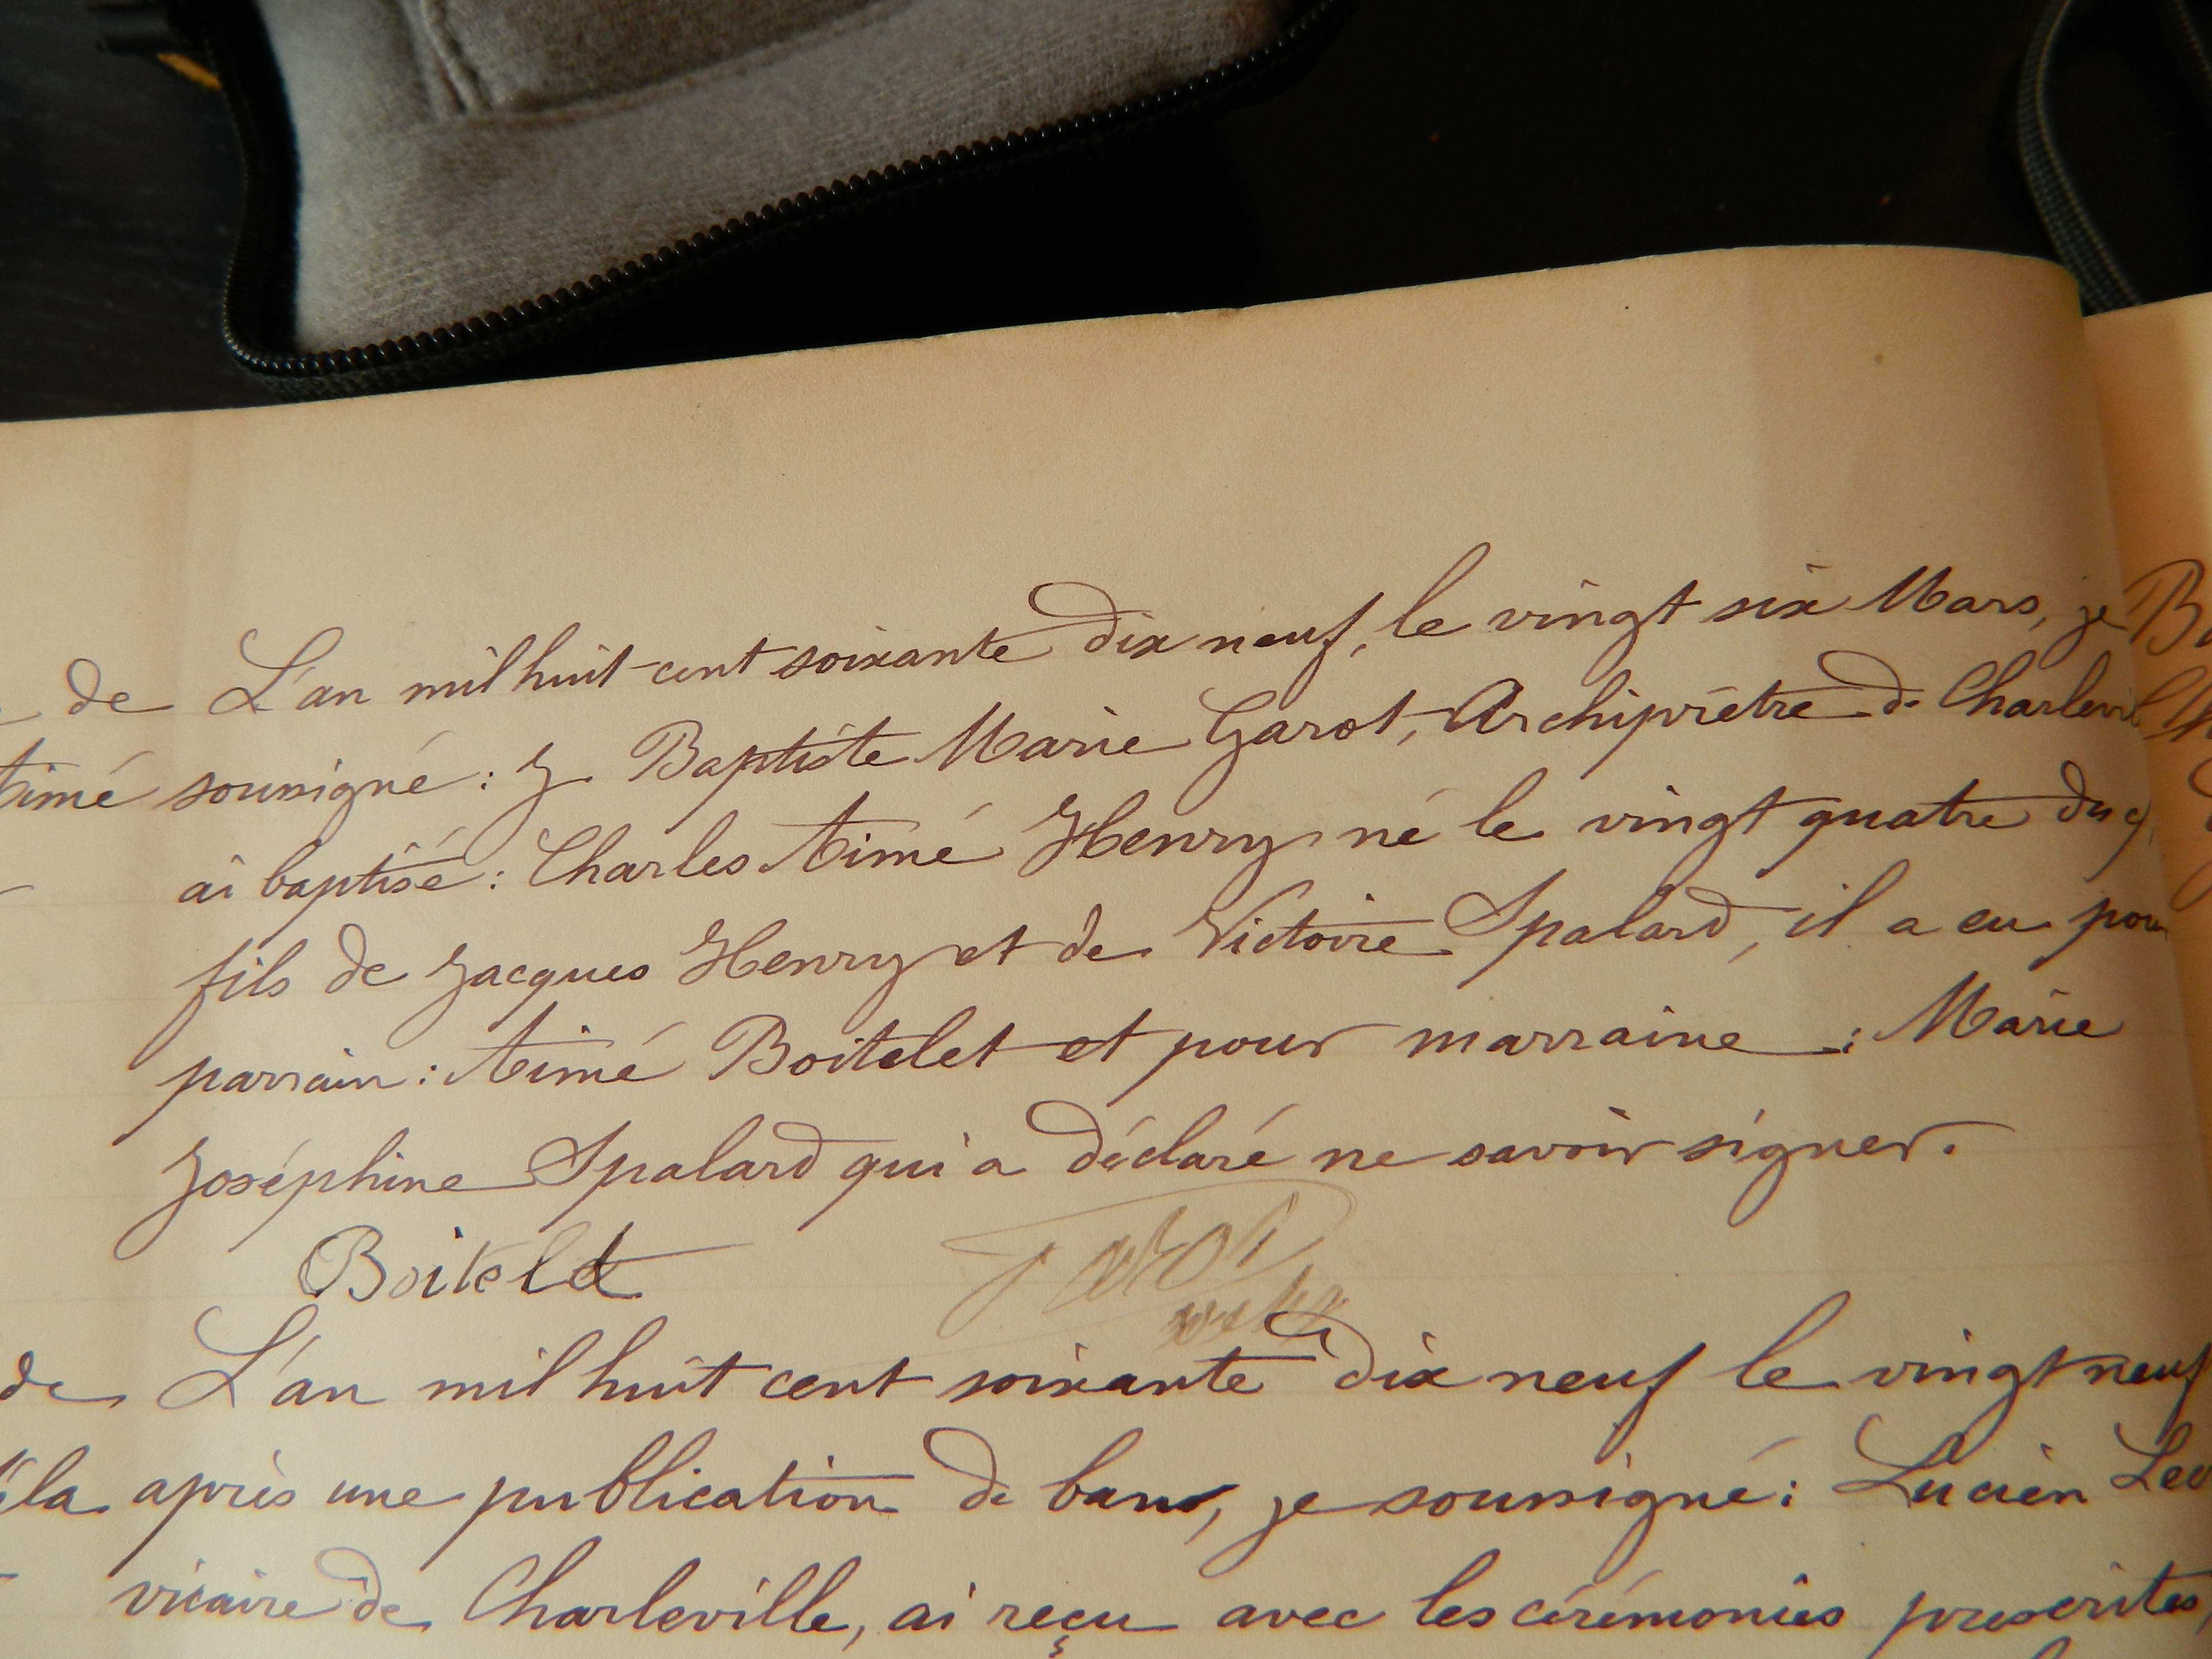 de L'an mil huit-cent soixante dix neuf, le vingt six Mars, je
Aimé soussigné : J. Baptiste Marie Garot, Archiprêtre de Charlevil
ai baptisé : Charles Aimé Henry né le vingt quatre du
fils de Jacques Henry et de Victoire Spalard, il a eu pour
parrain : Aimé Boitelet et pour marraine : Marie
Joséphine Spalard qui a déclaré ne savoir signer.
Boitelet Garot
de L'an mil huit cent soixante dix neuf le vingt neuf
la après une publication de bans, je soussigné : Lucien
vicaire de Charleville, ai reçu avec les cérémonies prescrites